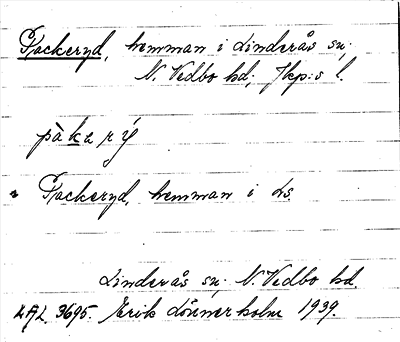 Packeryd, hemman i Linderås sn;
N. Vedbo hd; Jkp:s l.
pàkarý
Packeryd, hemman i Ls.
Linderås sn; N. Vedbo hd.
3695. Erik Lönnerholm 1939.